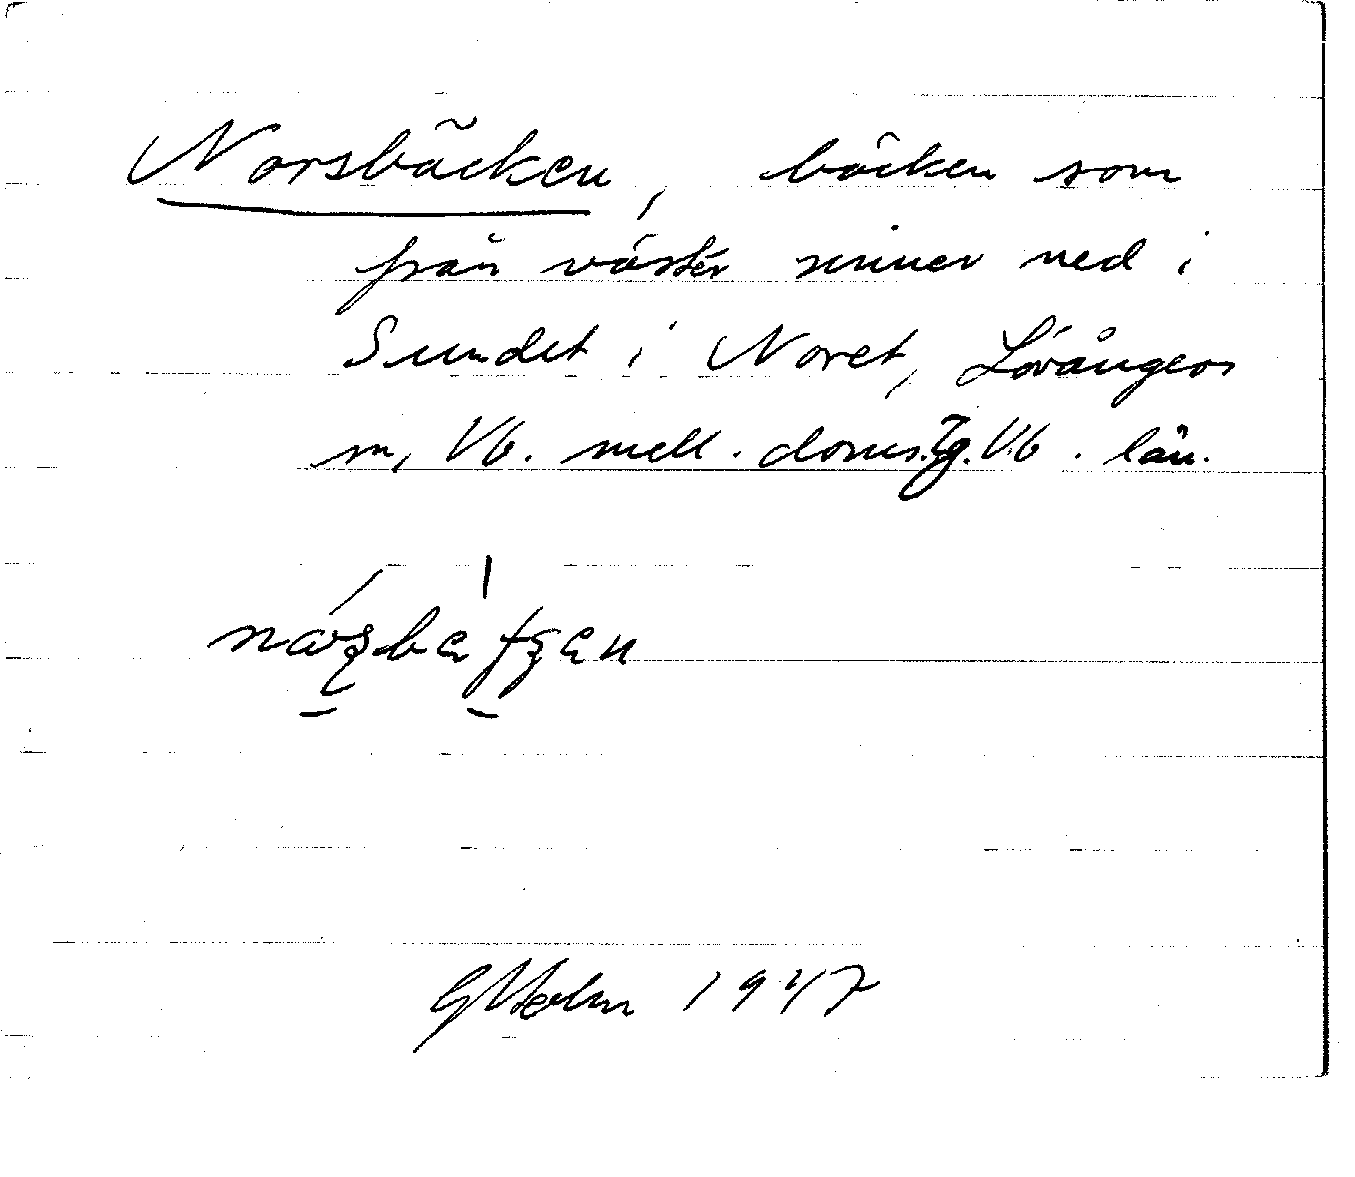 Norsbäcken, bäcken som
från väster rinner ned i
Sundet i Noret, Lövångers
sn, Vb. mell. doms. Tg. Vb. län.
G Holm 1947